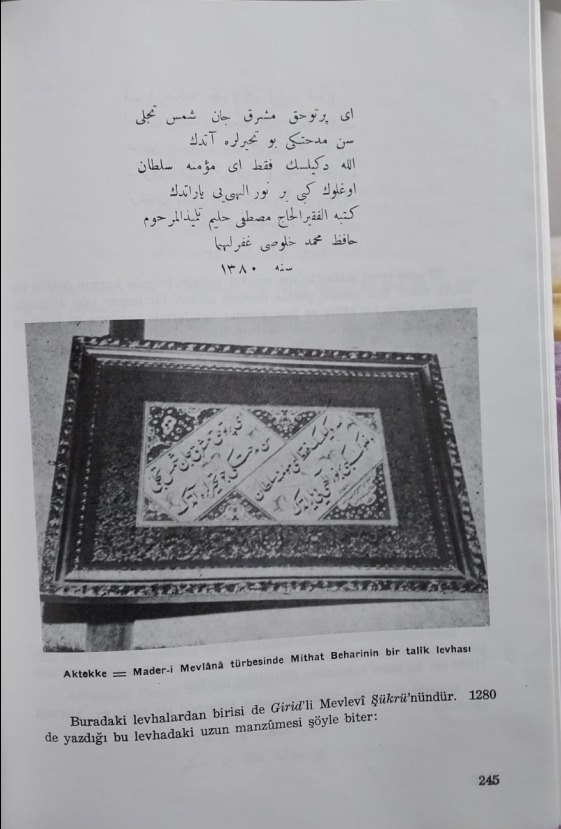 ای پرتوحق مشرق جان شمس تجلی
سن مدحتکی بو تحیرلره آتدك
الله دکیلسك فقط ای مؤمنه سلطان
اوغلوك کبی بر نور الهی‌یی یاراتدك
کتبه الفقیر الحاج مصطفی حلیم تلمیذ المرحوم
حافظ محمد خلوصی غفرلهما
سنه ١٣٨٠
Aktekke = Mader-i Mevlânâ türbesinde Mithat Beharinin bir talik levhası
Buradaki levhalardan birisi de Girid'li Mevlevî Şükrü'nündür. 1280
de yazdığı bu levhadaki uzun manzûmesi şöyle biter:
245